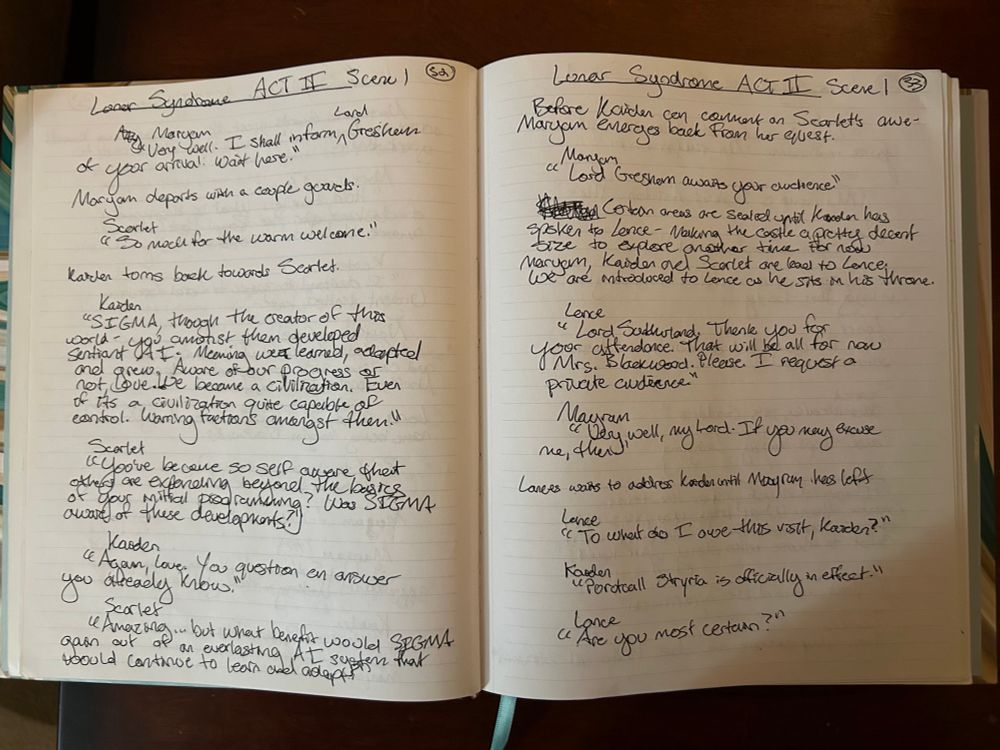 Lunar Syndrome ACT II Scene 1 32
Maryam Lord
"Very well. I shall inform Gresham
of your arrival. Wait here."
Maryam departs with a couple guards.
Scarlet
"So much for the warm welcome."
Kaiden turns back towards Scarlet.
Kaiden
"SIGMA, though the creator of this
world - you amongst them developed
sentiant AI. Meaning we learned, adapted
and grew. Aware of our progress or
not, Love. We became a civilization. Even
if its a civilization quite capable of
control. Warring factions amongst them."
Scarlet
"You've become so self aware that
others are expanding beyond the basics
of your initial programming? Was SIGMA
aware of these developments?"
Kaiden
"Again, Love. You question an answer
you already know."
Scarlet
"Amazing... but what benefit would SIGMA
gain out of an everlasting AI system that
would continue to learn and adapt?"
Lunar Syndrome ACT II Scene 1 33
Before Kaiden can comment on Scarlet's awe-
Maryam emerges back from her quest.
Maryam
"Lord Gresham awaits your audience."
Certain areas are sealed until Kaiden has
spoken to Lance - Making the castle a pretty decent
size to explore another time. For now
Maryam, Kaiden and Scarlet are lead to Lance.
We are introduced to Lance as he sits in his throne.
Lance
"Lord Sutherland. Thank you for
your attendance. That will be all for now
Mrs. Blackwood. Please. I request a
private audience."
Maryam
"Very well, my Lord. If you may excuse
me, then"
Lances waits to address Kaiden until Maryam has left
Lance
"To what do I owe this visit, Kaiden?"
Kaiden
"Portcall Stryria is officially in effect."
Lance
"Are you most certain?"